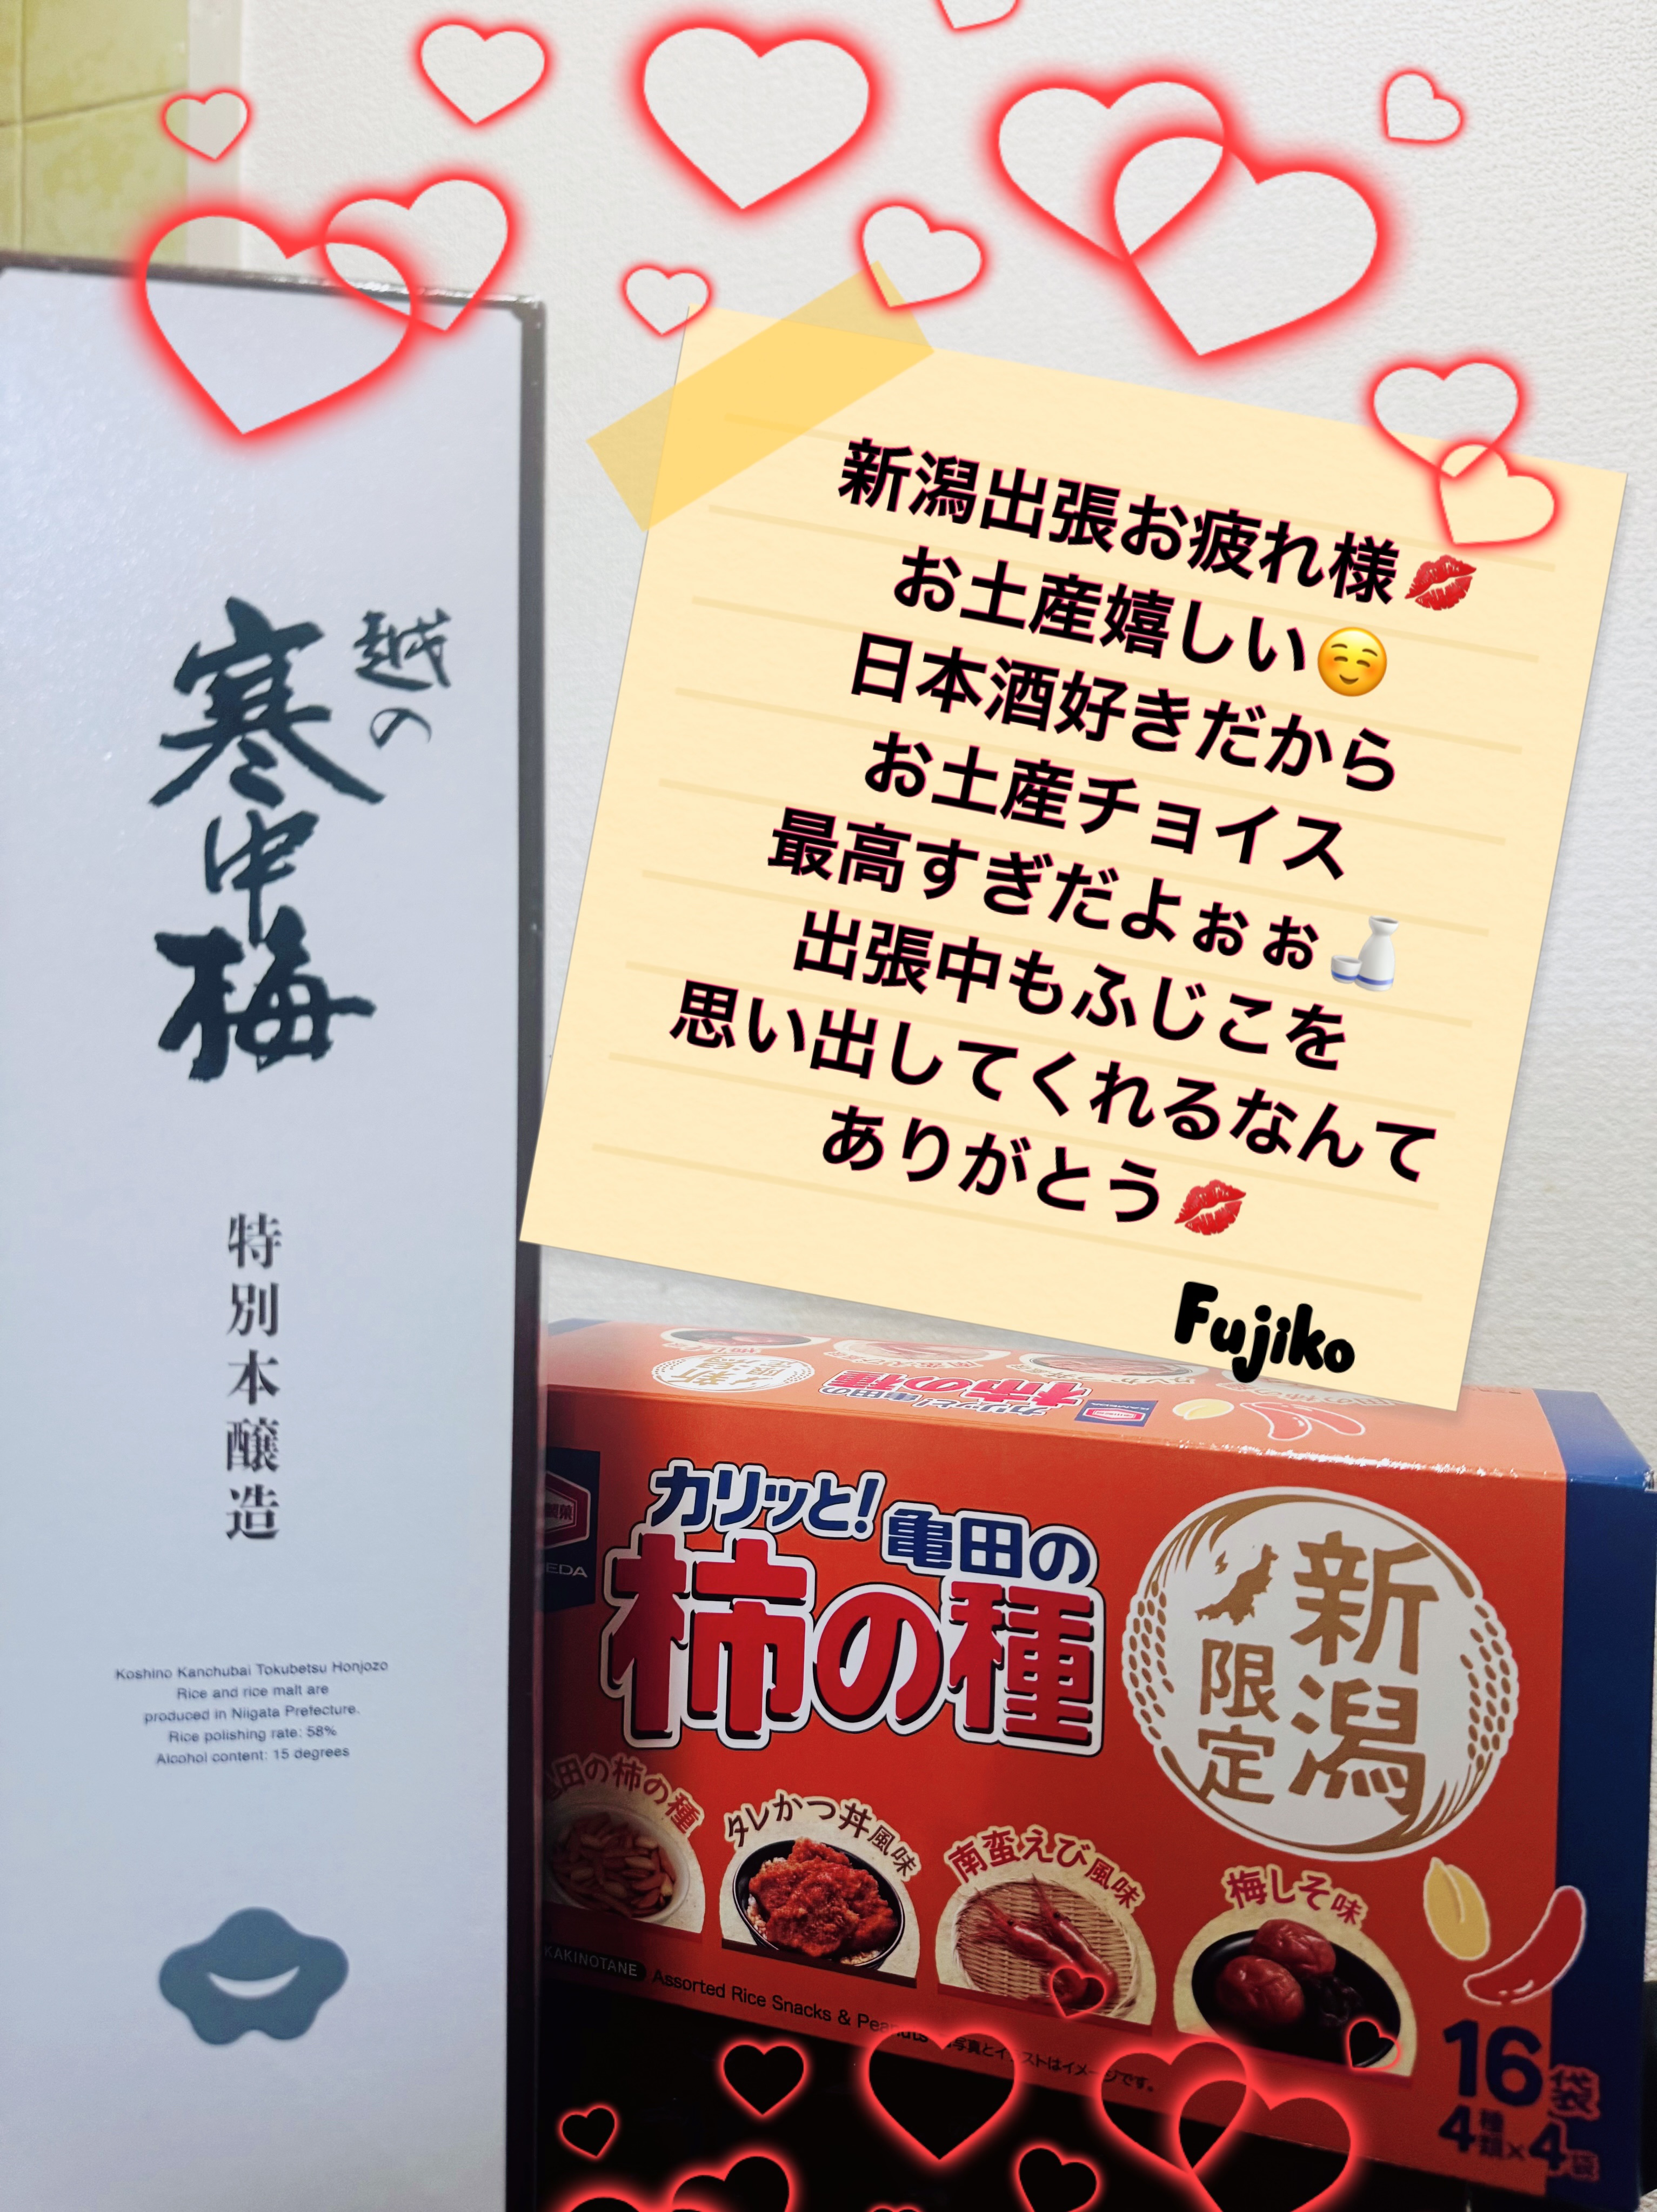 越の
寒中梅
特別本醸造
Koshino Kanchubai Tokubetsu Honjozo
Rice and rice malt are
produced in Niigata Prefecture.
Rice polishing rate: 58%
Alcohol content: 15 degrees
新潟出張お疲れ様💋
お土産嬉しい☺️
日本酒好きだから
お土産チョイス
最高すぎだよぉぉ🍶
出張中もふじこを
思い出してくれるなんて
ありがとう💋
Fujiko
カリッと!亀田の
柿の種
カリッと!
亀田の
柿の種
新潟
限定
田の柿の種
タレかつ丼風味
南蛮えび風味
梅しそ味
KAKINOTANE Assorted Rice Snacks & Peanuts
写真とイラストはイメージです。
16袋
4種類×4袋